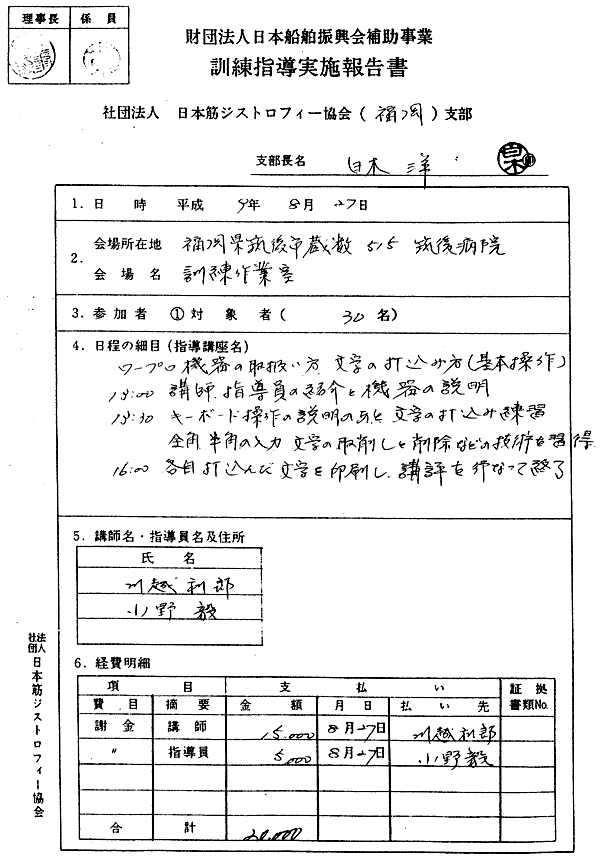 理事長 係員
財団法人日本船舶振興会補助事業
訓練指導実施報告書
社団法人 日本筋ジストロフィー協会(福岡)支部
支部長名 白木 洋
1. 日 時 平成 9年 8月 27日
2. 会場所在地 福岡県筑後市蔵数 515 筑後病院
会場名 訓練作業室
3. 参加者 ①対象者( 30名)
4. 日程の細目(指導講座名)
ワープロ機器の取扱い方 文字の打込み方(基本操作)
13:00 講師、指導員の紹介と機器の説明
13:30 キーボード操作の説明のあと文字の打込み練習
全角、半角の入力 文字の取消しと削除などの技術を習得
16:00 各自打込んだ文字を印刷し、講評を行なって終了
5. 講師名・指導員名及住所
氏 名
川越利郎
小野毅
6. 経費明細
項 目 支 払 い 証拠書類No.
費目 摘要 金額 月日 払い先
謝金 講師 15.000 8月27日 川越利郎
〃 指導員 5.000 8月27日 小野毅
合 計 20.000
社団法人 日本筋ジストロフィー協会